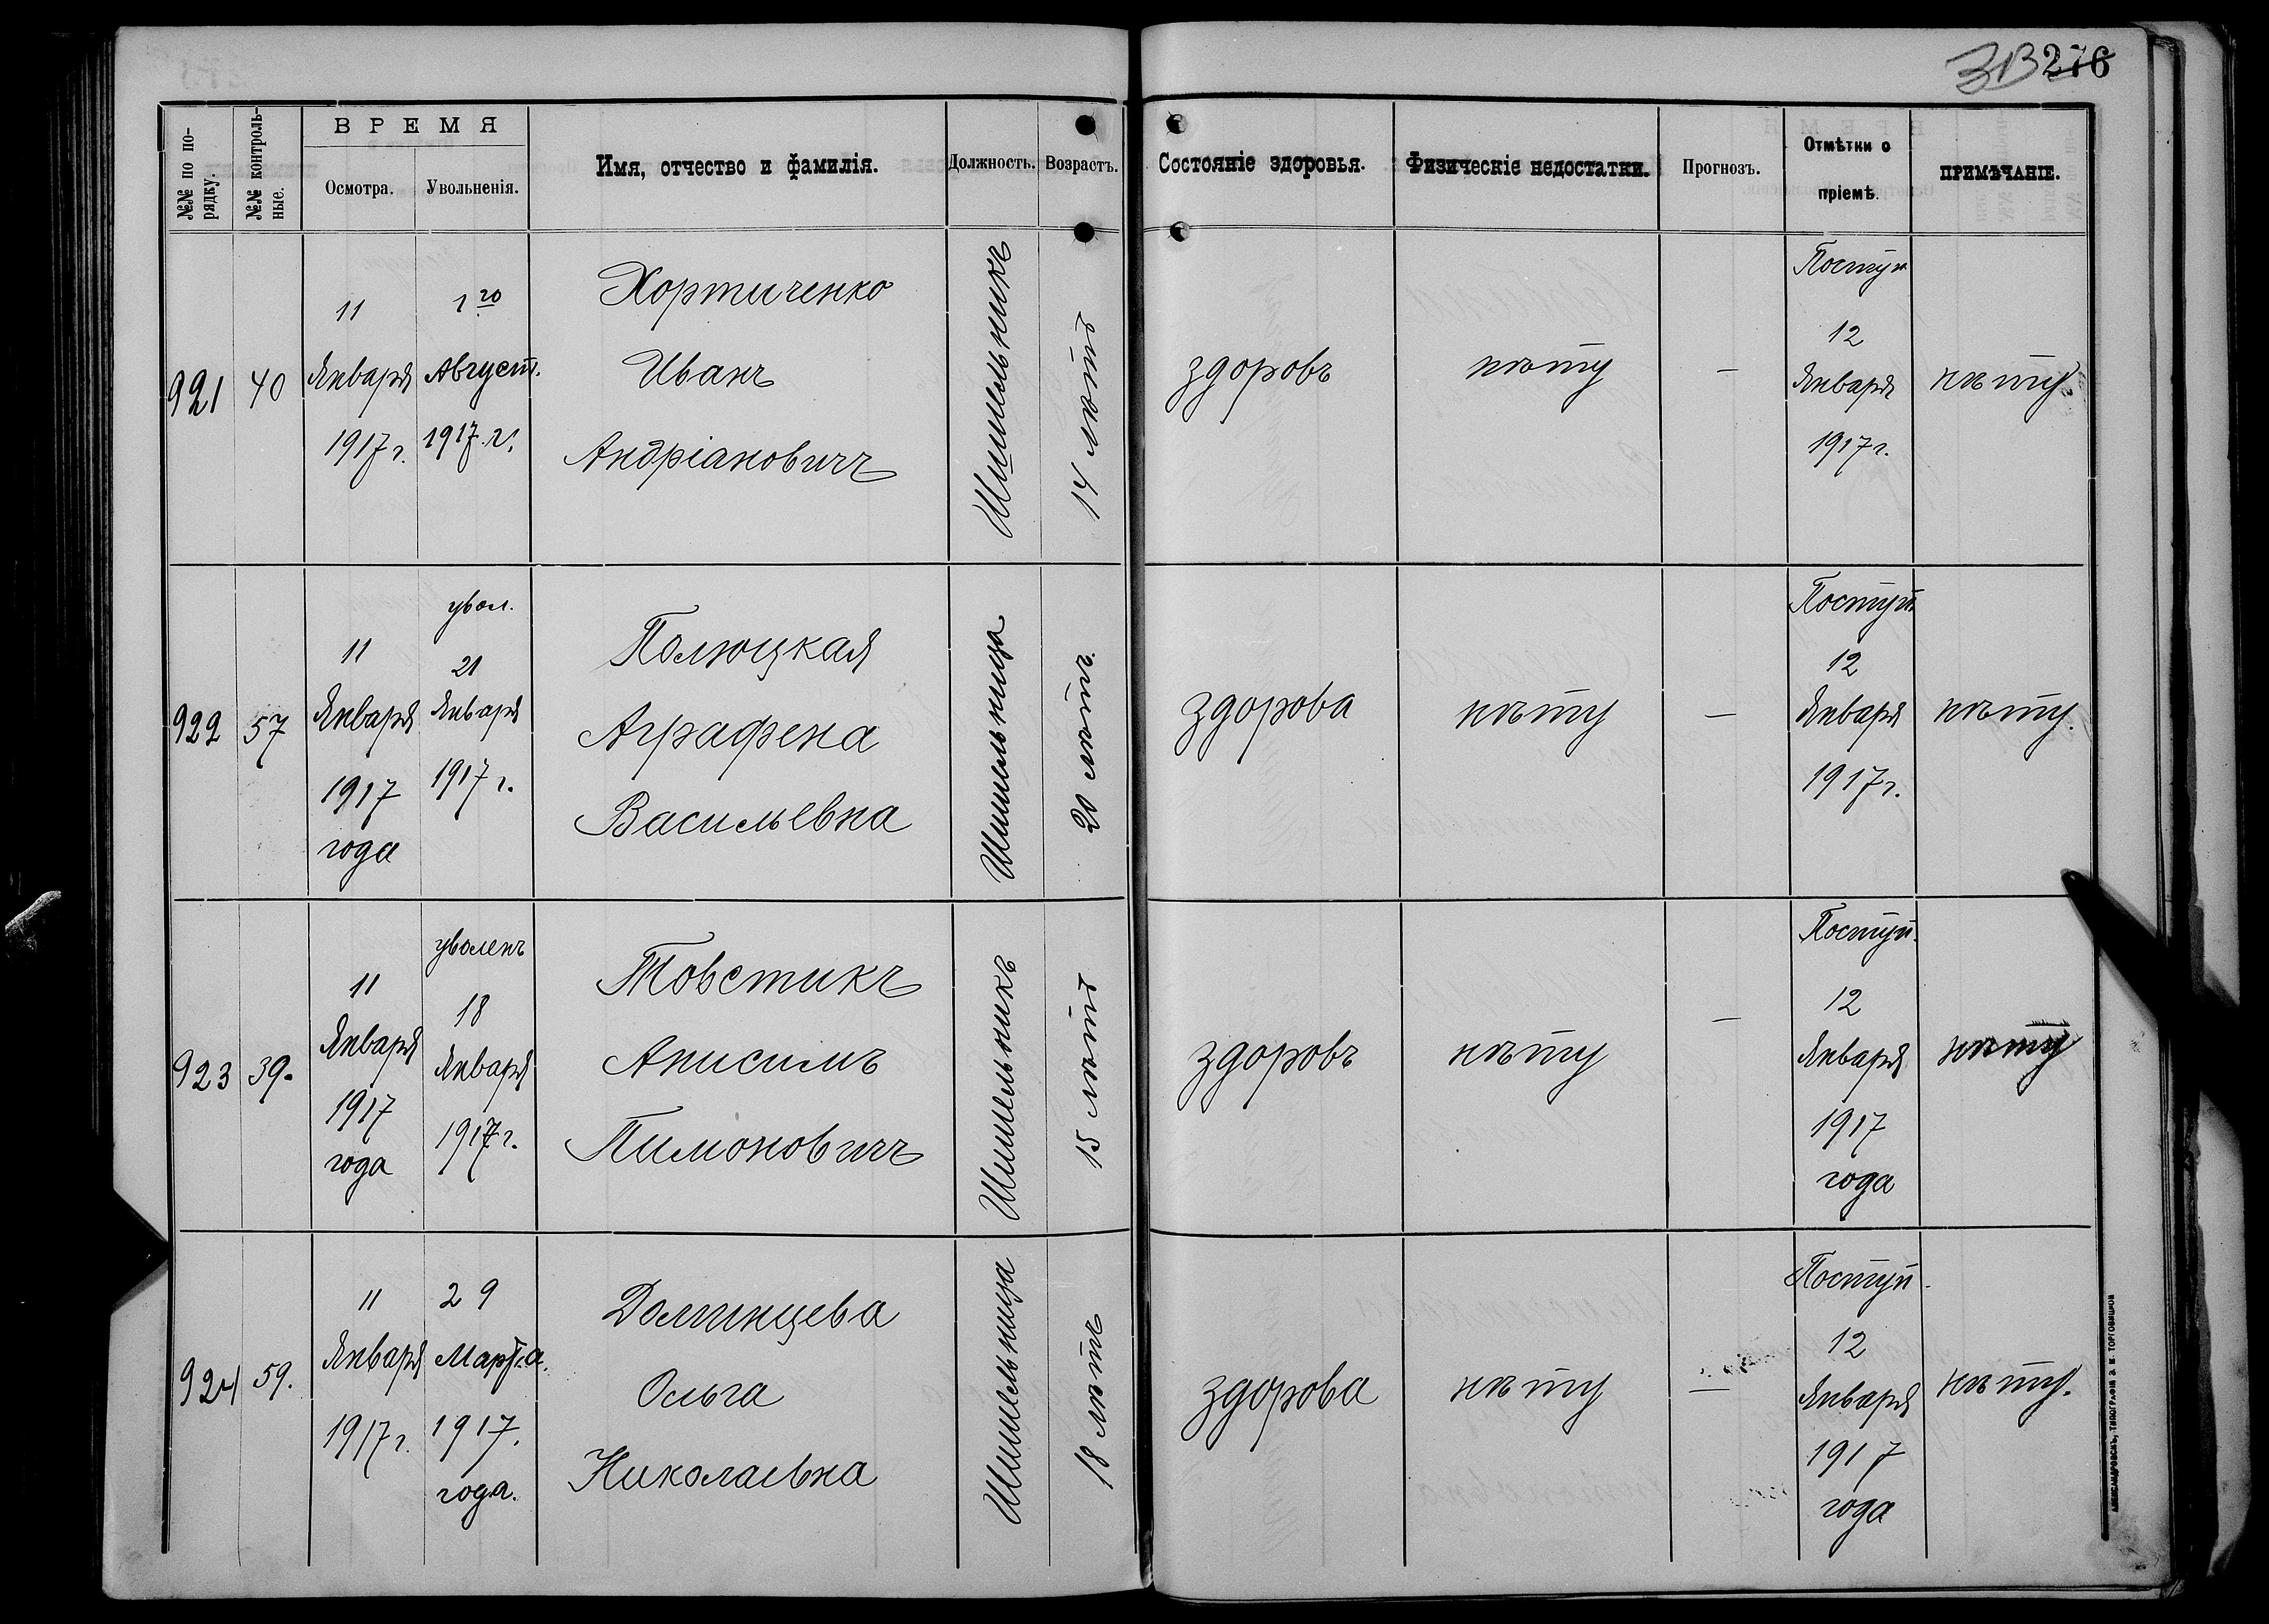 313 276
№№ по по-
рядку.
№№ контроль-
ные.
ВРЕМЯ
Осмотра.
Увольненія.
Имя, отчество и фамилія.
Должность.
Возрастъ.
Состояніе здоровья.
Физическіе недостатки.
Прогнозъ.
Отмѣтки о
пріемѣ.
ПРИМѢЧАНІЕ.
921
40
11
Января
1917 г.
1го
Август.
1917 г.
Хортиченко
Иванъ
Андріановичъ
Шпильникъ
14 лѣтъ
здоровъ
нѣту
—
Поступ.
12
Января
1917 г.
нѣту
922
57
11
Января
1917
года
увол.
21
Января
1917 г.
Полюцкая
Аграфена
Васильевна
Шпильница
20 лѣтъ.
здорова
нѣту
—
Поступ.
12
Января
1917 г.
нѣту.
923
39.
11
Января
1917
года
уволенъ
18
Января
1917 г.
Товстикъ
Анисимъ
Пимоновичъ
Шпильникъ
15 лѣтъ
здоровъ
нѣту
—
Поступ.
12
Января
1917
года
нѣту
924
59.
11
Января
1917 г.
29
Марта.
1917.
года.
Долинцева
Ольга
Николаевна
Шпильница
18 лѣтъ
здорова
нѣту
—
Поступ.
12
Января
1917
года
нѣту.
АЛЕКСАНДРОВСКЪ, ТИПОГРАФІЯ Э. И. ТОРГОВИЦКОВ